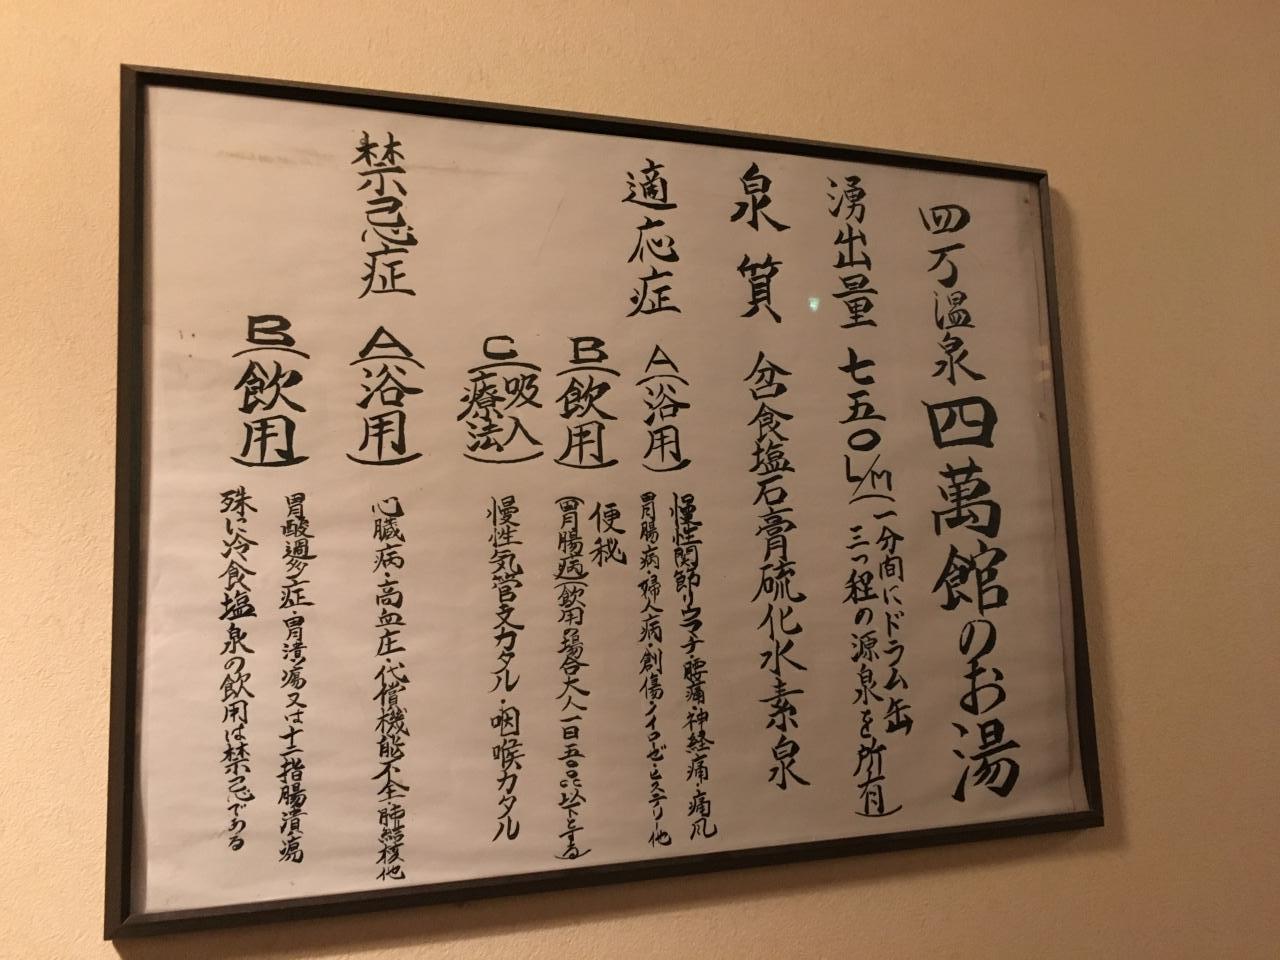 四万温泉 四萬館のお湯
湧出量 七五〇L/m(一分間にドラム缶
三つ程の源泉を所有)
泉質 含食塩石膏硫化水素泉
適応症 A(浴用) 慢性関節リウマチ・腰痛・神経痛・痛風
胃腸病・婦人病・創傷・イロゼ・ヒステリー他
B(飲用) 便秘
(胃腸病)(飲用の場合大人一日五〇〇cc以下とする)
C(吸入療法) 慢性気管支カタル・咽喉カタル
禁忌症 A(浴用) 心臓病・高血圧・代償機能不全・肺結核他
B(飲用) 胃酸過多症・胃潰瘍又は十二指腸潰瘍
殊に冷食塩泉の飲用は禁忌である